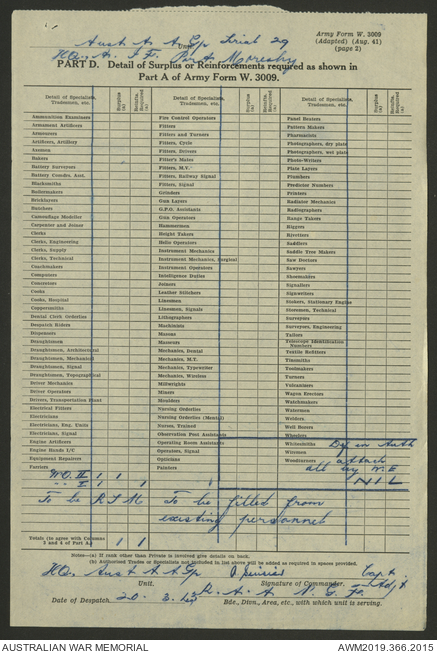 Army Form W. 3009
(Adapted) (Aug. 41)
(page 2)
Aust A. A Gp Serial 29
Unit
HQ., A. I. F. Port Moresby
PART D. Detail of Surplus or Reinforcements required as shown in
Part A of Army Form W. 3009.
Detail of Specialists, Tradesmen, etc. Surplus (a) Reinfts. Required (a) Detail of Specialists, Tradesmen, etc. Surplus (a) Reinfts. Required (a) Detail of Specialists, Tradesmen, etc. Surplus (a) Reinfts. Required (a)
Ammunition Examiners
Armament Artificers
Armourers
Artificers, Artillery
Axemen
Bakers
Battery Surveyors
Battery Comdrs. Asst.
Blacksmiths
Boilermakers
Bricklayers
Butchers
Camouflage Modeller
Carpenter and Joiner
Clerks
Clerks, Engineering
Clerks, Supply
Clerks, Technical
Coachmakers
Computers
Concretors
Cooks
Cooks, Hospital
Coppersmiths
Dental Clerk Orderlies
Despatch Riders
Dispensers
Draughtsmen
Draughtsmen, Architectural
Draughtsmen, Mechanical
Draughtsmen, Signal
Draughtsmen, Topographical
Driver Mechanics
Driver Operators
Drivers, Transportation Plant
Electrical Fitters
Electricians
Electricians, Eng. Units
Electricians, Signal
Engine Artificers
Engine Hands I.C.
Equipment Repairers
Farriers
Fire Control Operators
Fitters
Fitters and Turners
Fitters, Cycle
Fitters, Drivers
Fitter's Mates
Fitters, M.V.
Fitters, Railway Signal
Fitters, Signal
Grinders
Gun Layers
G.P.O. Assistants
Gun Operators
Hammermen
Height Takers
Helio Operators
Instrument Mechanics
Instrument Mechanics, Surgical
Instrument Operators
Intelligence Duties
Joiners
Leather Stitchers
Linesmen
Linesmen, Signals
Lithographers
Machinists
Masons
Masseurs
Mechanics, Dental
Mechanics, M.T.
Mechanics, Typewriter
Mechanics, Wireless
Millwrights
Miners
Moulders
Nursing Orderlies
Nursing Orderlies (Mental)
Nurses, Trained
Observation Post Assistants
Operating Room Assistants
Operators, Signal
Opticians
Painters
Panel Beaters
Pattern Makers
Pharmacists
Photographers, dry plate
Photographers, wet plate
Photo-Writers
Plate Layers
Plumbers
Predictor Numbers
Printers
Radiator Mechanics
Radiographers
Range Takers
Riggers
Rivetters
Saddlers
Saddle Tree Makers
Saw Doctors
Sawyers
Shoemakers
Signallers
Signwriters
Stokers, Stationary Engine
Storemen, Technical
Surveyors
Surveyors, Engineering
Tailors
Telescope Identification Numbers
Textile Refitters
Tinsmiths
Toolmakers
Turners
Vulcanisers
Wagon Erectors
Watchmakers
Watermen
Welders
Well Borers
Wheelers
Whitesmiths
Wiremen
Woodturners
W.O. II 1 1
" I 1 1
NIL
To be R S M To be filled from
existing personnel
Totals (to agree with Columns 3 and 4 of Part A.) 1 1
Notes—(a) If rank other than Private is involved give details on back.
(b) Authorized Trades or Specialists not included in list above will be added as required in spaces provided.
HQ. Aust A A Gp Capt & Adjt
Unit. Signature of Commander.
A. A N. G. Fo.
Date of Despatch. 20. 3. Bde., Divn., Area, etc., with which unit is serving.
AUSTRALIAN WAR MEMORIAL AWM2019.366.2015